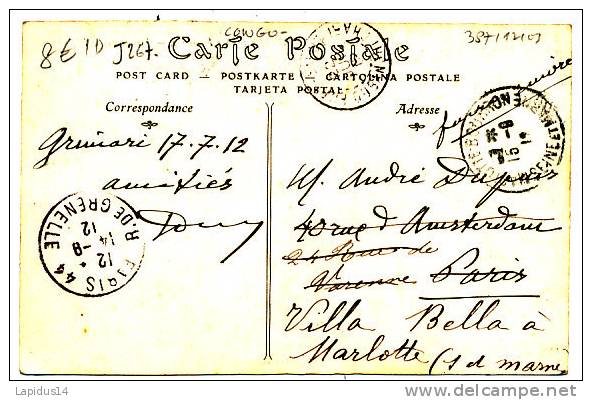 8€ 10 J267. CONGO- 387/12/03
Carte Postale
POST CARD — POSTKARTE — CARTOLINA POSTALE
TARJETA POSTAL
Correspondance
Adresse
Grimari 17.7.12
amitiés
M. André Dupuis
40 rue d'Amsterdam
24 Rue de
Varenne Paris
Villa Bella à
Marlotte (s et marne)
PARIS 44
R. DE GRENELLE
12
14-9
12
Lapidus14
delcampe.net